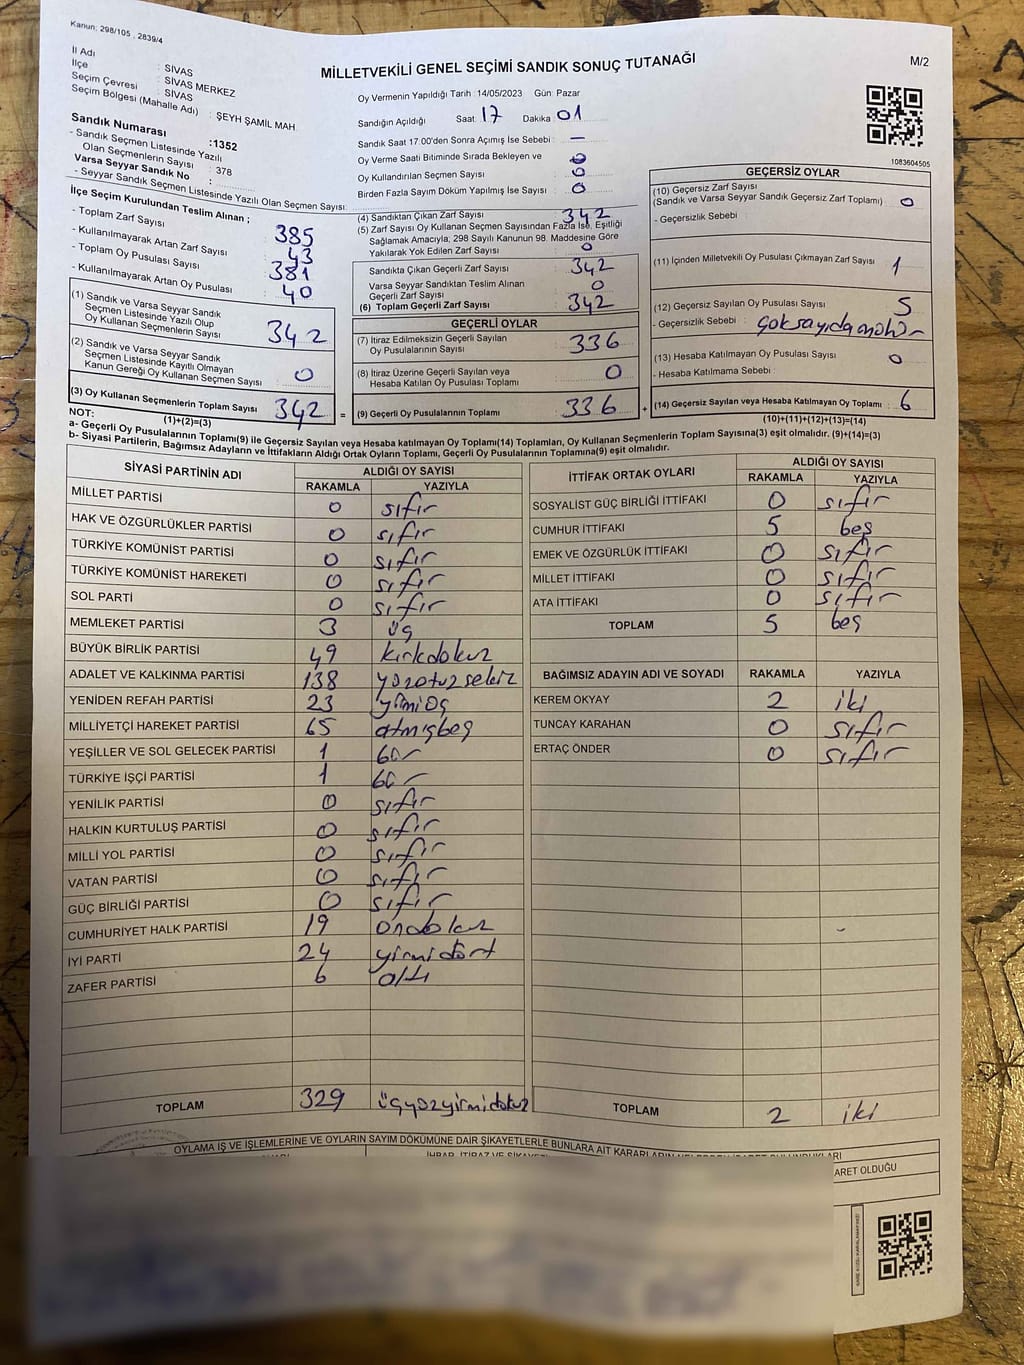 Kanun: 298/105 , 2839/4
MİLLETVEKİLİ GENEL SEÇİMİ SANDIK SONUÇ TUTANAĞI
M/2
İl Adı : SİVAS
İlçe : SİVAS MERKEZ
Seçim Çevresi : SİVAS
Seçim Bölgesi (Mahalle Adı) : ŞEYH ŞAMİL MAH.
Sandık Numarası :1352
- Sandık Seçmen Listesinde Yazılı
Olan Seçmenlerin Sayısı : 378
Varsa Seyyar Sandık No :
- Seyyar Sandık Seçmen Listesinde Yazılı Olan Seçmen Sayısı:
Oy Vermenin Yapıldığı Tarih : 14/05/2023 Gün: Pazar
Sandığın Açıldığı Saat: 17 Dakika 01
Sandık Saat 17:00'den Sonra Açımış İse Sebebi : —
Oy Verme Saati Bitiminde Sırada Bekleyen ve 0
Oy Kullandırılan Seçmen Sayısı : 0
Birden Fazla Sayım Döküm Yapılmış İse Sayısı : 0
1083604505
İlçe Seçim Kurulundan Teslim Alınan ;
- Toplam Zarf Sayısı : 385
- Kullanılmayarak Artan Zarf Sayısı : 43
- Toplam Oy Pusulası Sayısı : 381
- Kullanılmayarak Artan Oy Pusulası : 40
(1) Sandık ve Varsa Seyyar Sandık
Seçmen Listesinde Yazılı Olup
Oy Kullanan Seçmenlerin Sayısı : 342
(2) Sandık ve Varsa Seyyar Sandık
Seçmen Listesinde Kayıtlı Olmayan
Kanun Gereği Oy Kullanan Seçmen Sayısı : 0
(3) Oy Kullanan Seçmenlerin Toplam Sayısı : 342
(1)+(2)=(3)
(4) Sandıktan Çıkan Zarf Sayısı : 342
(5) Zarf Sayısı Oy Kullanan Seçmen Sayısından Fazla İse, Eşitliği
Sağlamak Amacıyla, 298 Sayılı Kanunun 98. Maddesine Göre
Yakılarak Yok Edilen Zarf Sayısı : 0
Sandıkta Çıkan Geçerli Zarf Sayısı : 342
Varsa Seyyar Sandıktan Teslim Alınan
Geçerli Zarf Sayısı : 0
(6) Toplam Geçerli Zarf Sayısı : 342
GEÇERLİ OYLAR
(7) İtiraz Edilmeksizin Geçerli Sayılan
Oy Pusulalarının Sayısı : 336
(8) İtiraz Üzerine Geçerli Sayılan veya
Hesaba Katılan Oy Pusulası Toplamı : 0
= (9) Geçerli Oy Pusulalarının Toplamı : 336 +
GEÇERSİZ OYLAR
(10) Geçersiz Zarf Sayısı
(Sandık ve Varsa Seyyar Sandık Geçersiz Zarf Toplamı) : 0
- Geçersizlik Sebebi :
(11) İçinden Milletvekili Oy Pusulası Çıkmayan Zarf Sayısı : 1
(12) Geçersiz Sayılan Oy Pusulası Sayısı : 5
- Geçersizlik Sebebi : Çok sayıda mühür
(13) Hesaba Katılmayan Oy Pusulası Sayısı : 0
- Hesaba Katılmama Sebebi :
(14) Geçersiz Sayılan veya Hesaba Katılmayan Oy Toplamı : 6
(10)+(11)+(12)+(13)=(14)
NOT:
a- Geçerli Oy Pusulalarının Toplamı(9) ile Geçersiz Sayılan veya Hesaba katılmayan Oy Toplamı(14) Toplamları, Oy Kullanan Seçmenlerin Toplam Sayısına(3) eşit olmalıdır. (9)+(14)=(3)
b- Siyasi Partilerin, Bağımsız Adayların ve İttifakların Aldığı Ortak Oyların Toplamı, Geçerli Oy Pusulalarının Toplamına(9) eşit olmalıdır.
SİYASİ PARTİNİN ADI ALDIĞI OY SAYISI
RAKAMLA YAZIYLA
MİLLET PARTİSİ 0 sıfır
HAK VE ÖZGÜRLÜKLER PARTİSİ 0 sıfır
TÜRKİYE KOMÜNİST PARTİSİ 0 sıfır
TÜRKİYE KOMÜNİST HAREKETİ 0 sıfır
SOL PARTİ 0 sıfır
MEMLEKET PARTİSİ 3 üç
BÜYÜK BİRLİK PARTİSİ 49 kırkdokuz
ADALET VE KALKINMA PARTİSİ 138 yüzotuzsekiz
YENİDEN REFAH PARTİSİ 23 yirmiüç
MİLLİYETÇİ HAREKET PARTİSİ 65 atmışbeş
YEŞİLLER VE SOL GELECEK PARTİSİ 1 bir
TÜRKİYE İŞÇİ PARTİSİ 1 bir
YENİLİK PARTİSİ 0 sıfır
HALKIN KURTULUŞ PARTİSİ 0 sıfır
MİLLİ YOL PARTİSİ 0 sıfır
VATAN PARTİSİ 0 sıfır
GÜÇ BİRLİĞİ PARTİSİ 0 sıfır
CUMHURİYET HALK PARTİSİ 19 ondokuz
İYİ PARTİ 24 yirmidört
ZAFER PARTİSİ 6 altı
TOPLAM 329 üçyüzyirmidokuz
İTTİFAK ORTAK OYLARI ALDIĞI OY SAYISI
RAKAMLA YAZIYLA
SOSYALİST GÜÇ BİRLİĞİ İTTİFAKI 0 sıfır
CUMHUR İTTİFAKI 5 beş
EMEK VE ÖZGÜRLÜK İTTİFAKI 0 sıfır
MİLLET İTTİFAKI 0 sıfır
ATA İTTİFAKI 0 sıfır
TOPLAM 5 beş
BAĞIMSIZ ADAYIN ADI VE SOYADI RAKAMLA YAZIYLA
KEREM OKYAY 2 iki
TUNCAY KARAHAN 0 sıfır
ERTAÇ ÖNDER 0 sıfır
TOPLAM 2 iki
OYLAMA İŞ VE İŞLEMLERİNE VE OYLARIN SAYIM DÖKÜMÜNE DAİR ŞİKAYETLERLE BUNLARA AİT KARARLARIN
ARET OLDUĞU